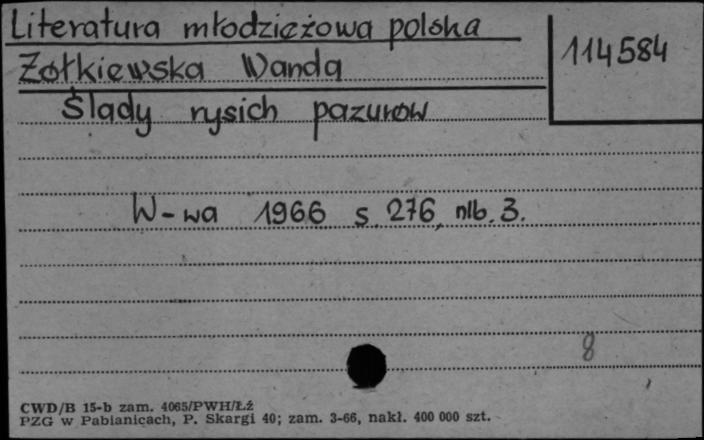 Literatura młodzieżowa polska
114584
Żółkiewska Wanda
Ślady rysich pazurów
W-wa 1966 s. 276, nlb. 3.
8
CWD/B 15-b zam. 4065/PWH/Łź
PZG w Pabianicach, P. Skargi 40; zam. 3-66, nakł. 400 000 szt.